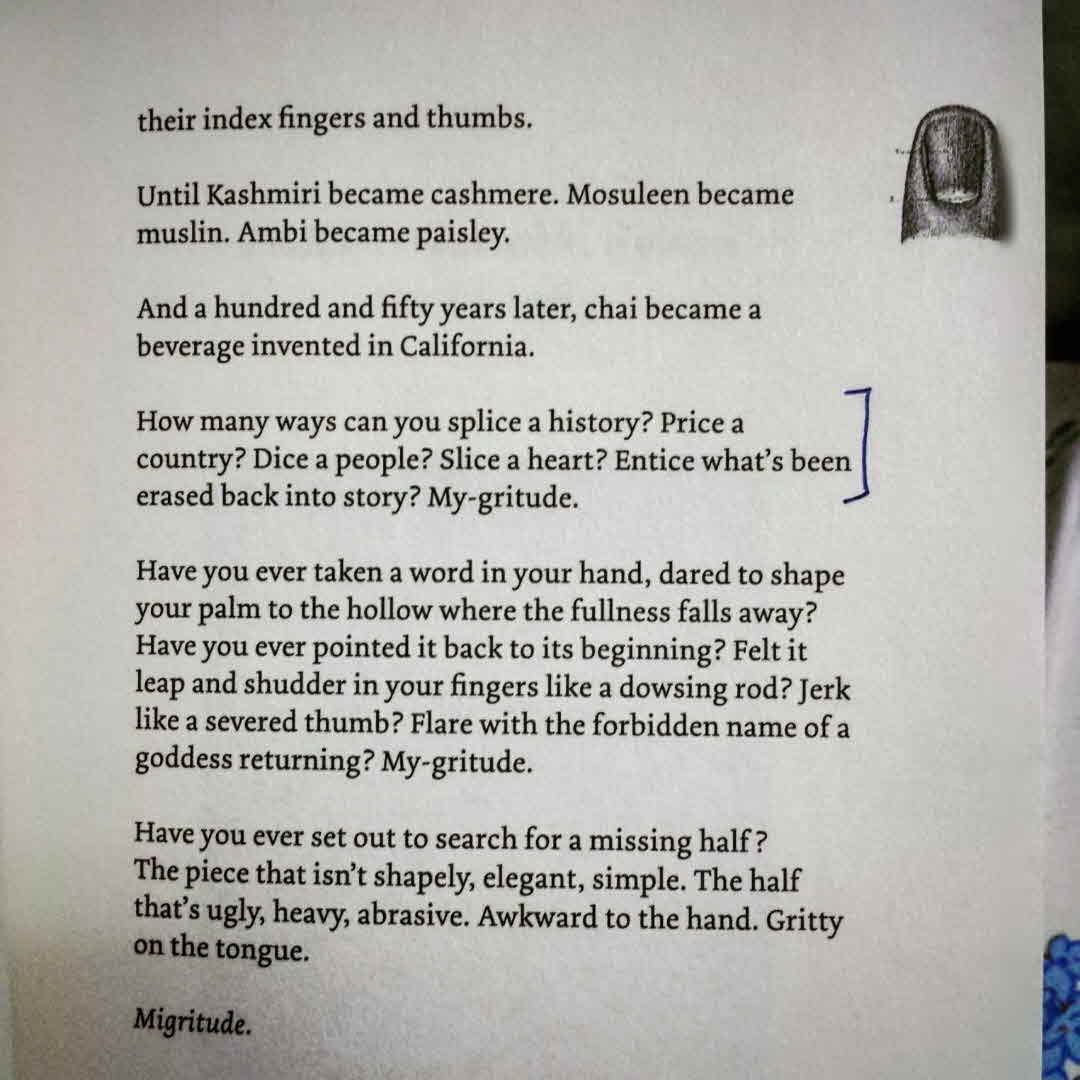 their index fingers and thumbs.
Until Kashmiri became cashmere. Mosuleen became
muslin. Ambi became paisley.
And a hundred and fifty years later, chai became a
beverage invented in California.
How many ways can you splice a history? Price a
country? Dice a people? Slice a heart? Entice what's been
erased back into story? My-gritude.
Have you ever taken a word in your hand, dared to shape
your palm to the hollow where the fullness falls away?
Have you ever pointed it back to its beginning? Felt it
leap and shudder in your fingers like a dowsing rod? Jerk
like a severed thumb? Flare with the forbidden name of a
goddess returning? My-gritude.
Have you ever set out to search for a missing half?
The piece that isn't shapely, elegant, simple. The half
that's ugly, heavy, abrasive. Awkward to the hand. Gritty
on the tongue.
Migritude.